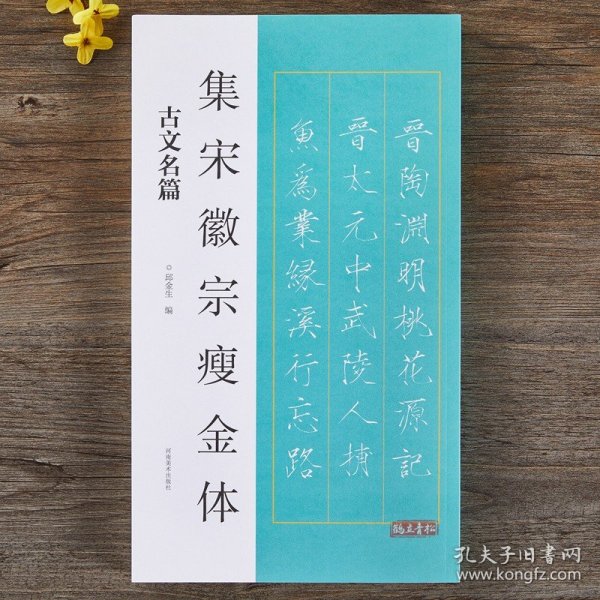 集宋徽宗瘦金体
古文名篇
◎邱金生 编
河南美术出版社
晉陶淵明桃花源記
晉太元中武陵人捕
魚爲業緣溪行忘路
鶴立青松
孔夫子旧书网
www.kongfz.com